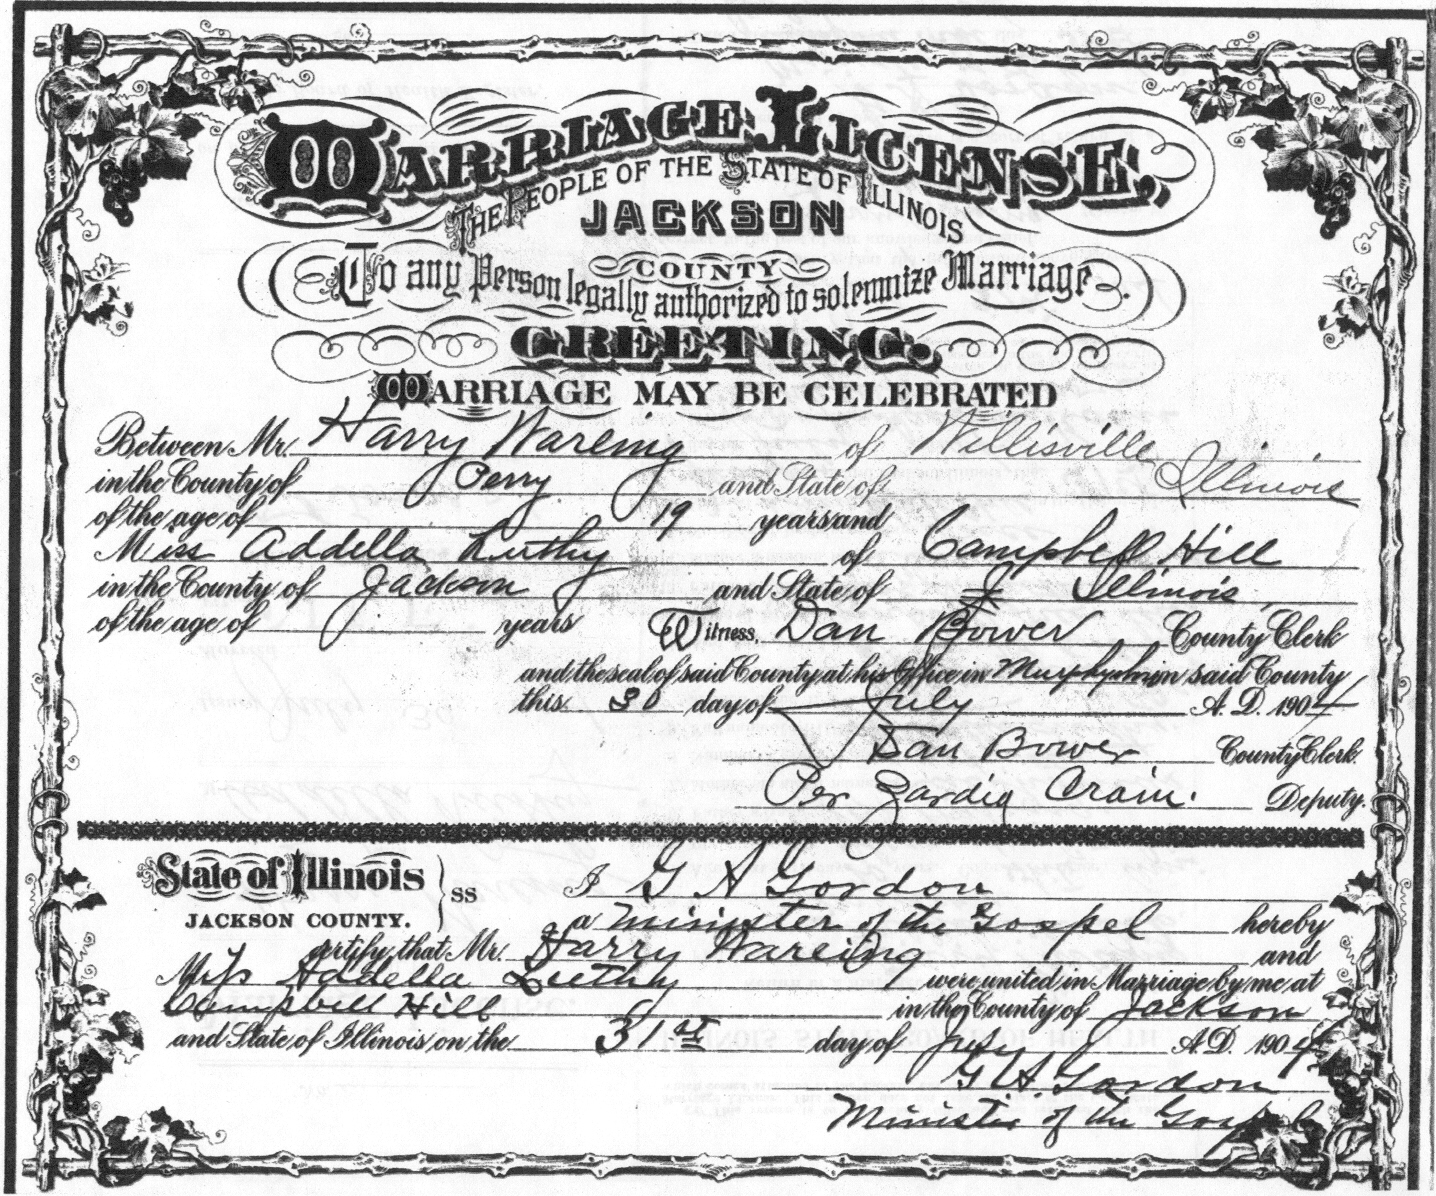 MARRIAGE LICENSE,
THE PEOPLE OF THE STATE OF ILLINOIS
JACKSON
COUNTY
To any Person legally authorized to solemnize Marriage
GREETING.
MARRIAGE MAY BE CELEBRATED
Between Mr. Harry Wareing of Willisville Illinois
in the County of Perry and State of Illinois
of the age of 19 years and
Miss Addella Luthy of Campbell Hill
in the County of Jackson and State of Illinois
of the age of years Witness, Dan Bower County Clerk
and the seal of said County at his Office in in said County
this 30 day of July A. D. 1904
Dan Bower County Clerk.
Per Crain. Deputy.
State of Illinois } ss I G A Gordon
JACKSON COUNTY. a minister of the Gospel hereby
certify, that Mr. Harry Wareing and
Miss Addella Luthy were united in Marriage by me at
Campbell Hill in the County of Jackson
and State of Illinois on the 31st day of July A.D. 1904
G A Gordon
Minister of the Gospel